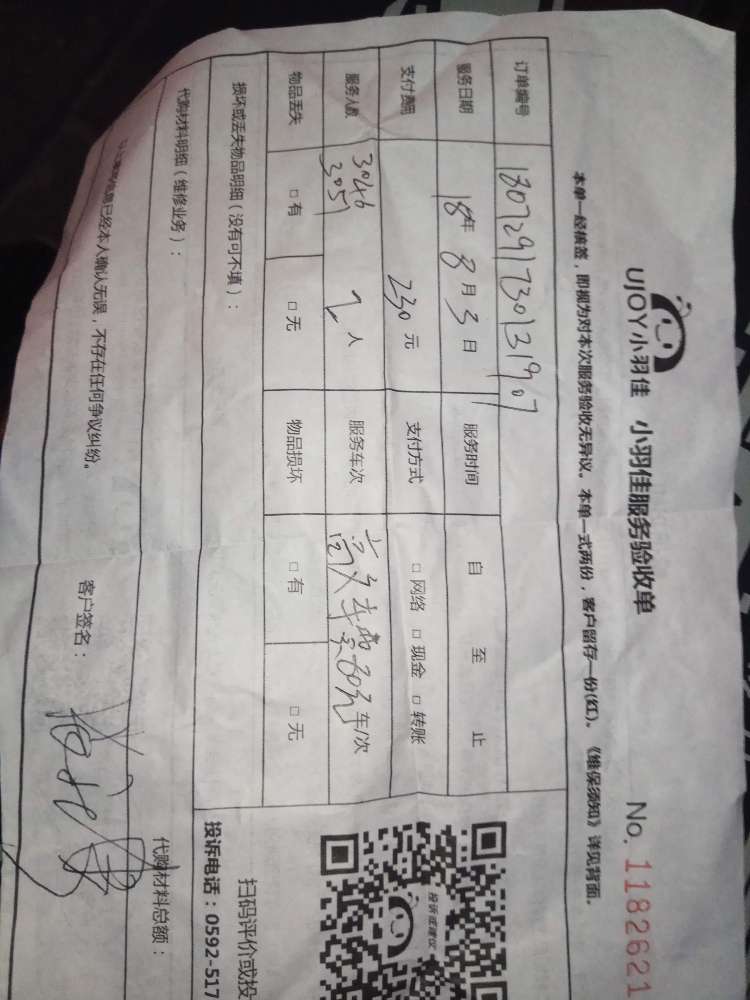 UJOY小羽佳 小羽佳服务验收单 No. 1182621
本单一经核签，即视为对本次服务验收无异议。本单一式两份，客户留存一份(红)。《维保须知》详见背面。
订单编号 1807291730131907
服务日期 18年 8月 3日 服务时间 自 至 止
支付费用 230元 支付方式 □ 网络 □ 现金 □ 转账
服务人数 3046 3051 2人 服务车次 车/次
物品丢失 □ 有 □ 无 物品损坏 □ 有 □ 无
损坏或丢失物品明细（没有可不填）：
代购材料明细（维修业务）： 代购材料总额：
信息已经本人确认无误，不存在任何争议纠纷。
客户签名：
投诉或建议
扫码评价或投
投诉电话：0592-517